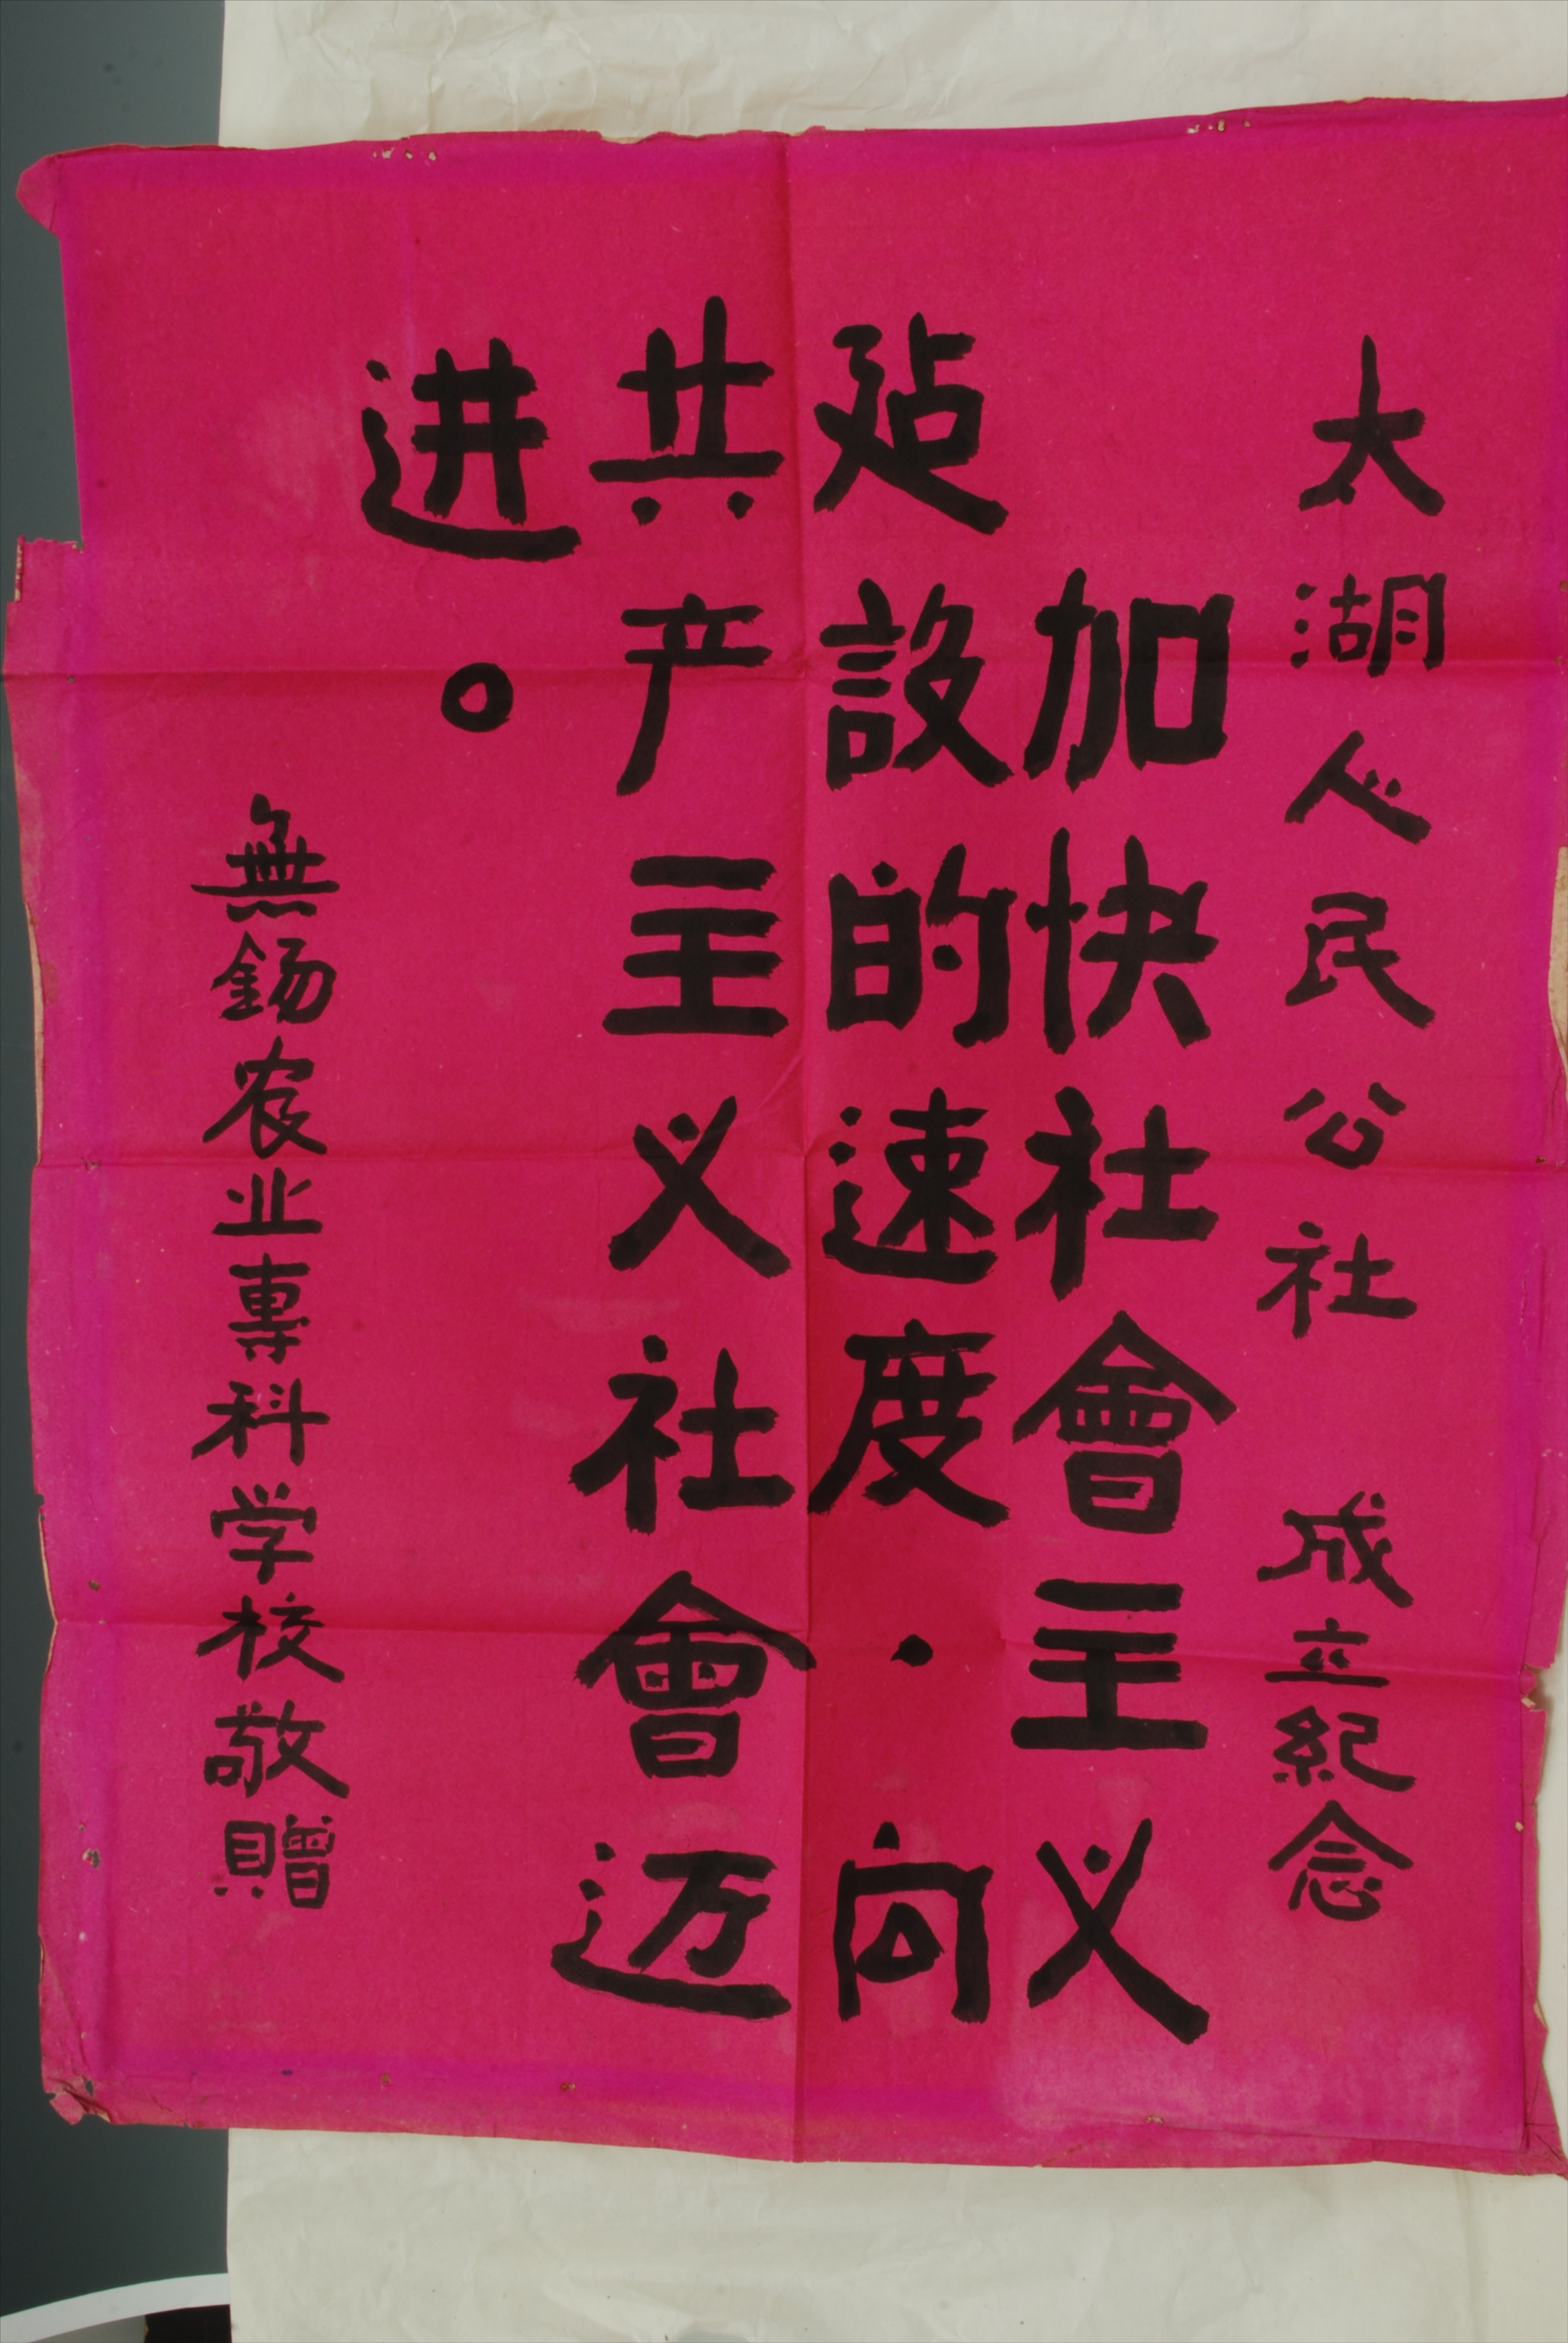 太湖人民公社 成立紀念
加快社會主义
建設的速度·向
共产主义社會迈
进。
無錫农业專科学校敬贈